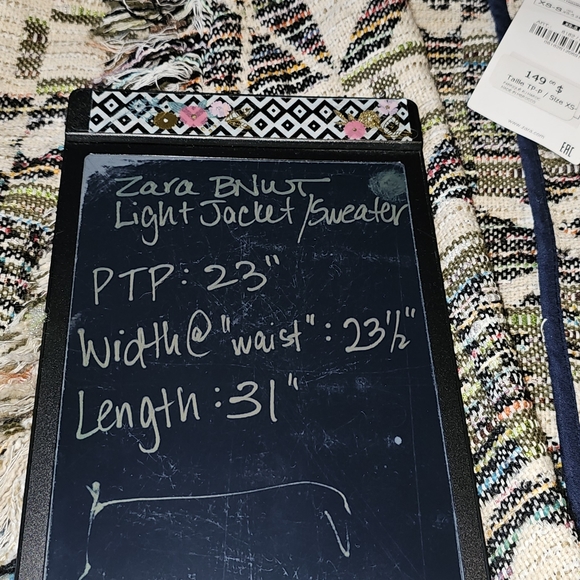 Zara BNWT
Light Jacket/Sweater
PTP: 23"
Width@ "waist": 23½"
Length: 31"
149.00 $
Taille TP-P / Size XS
www.zara.com
EAC